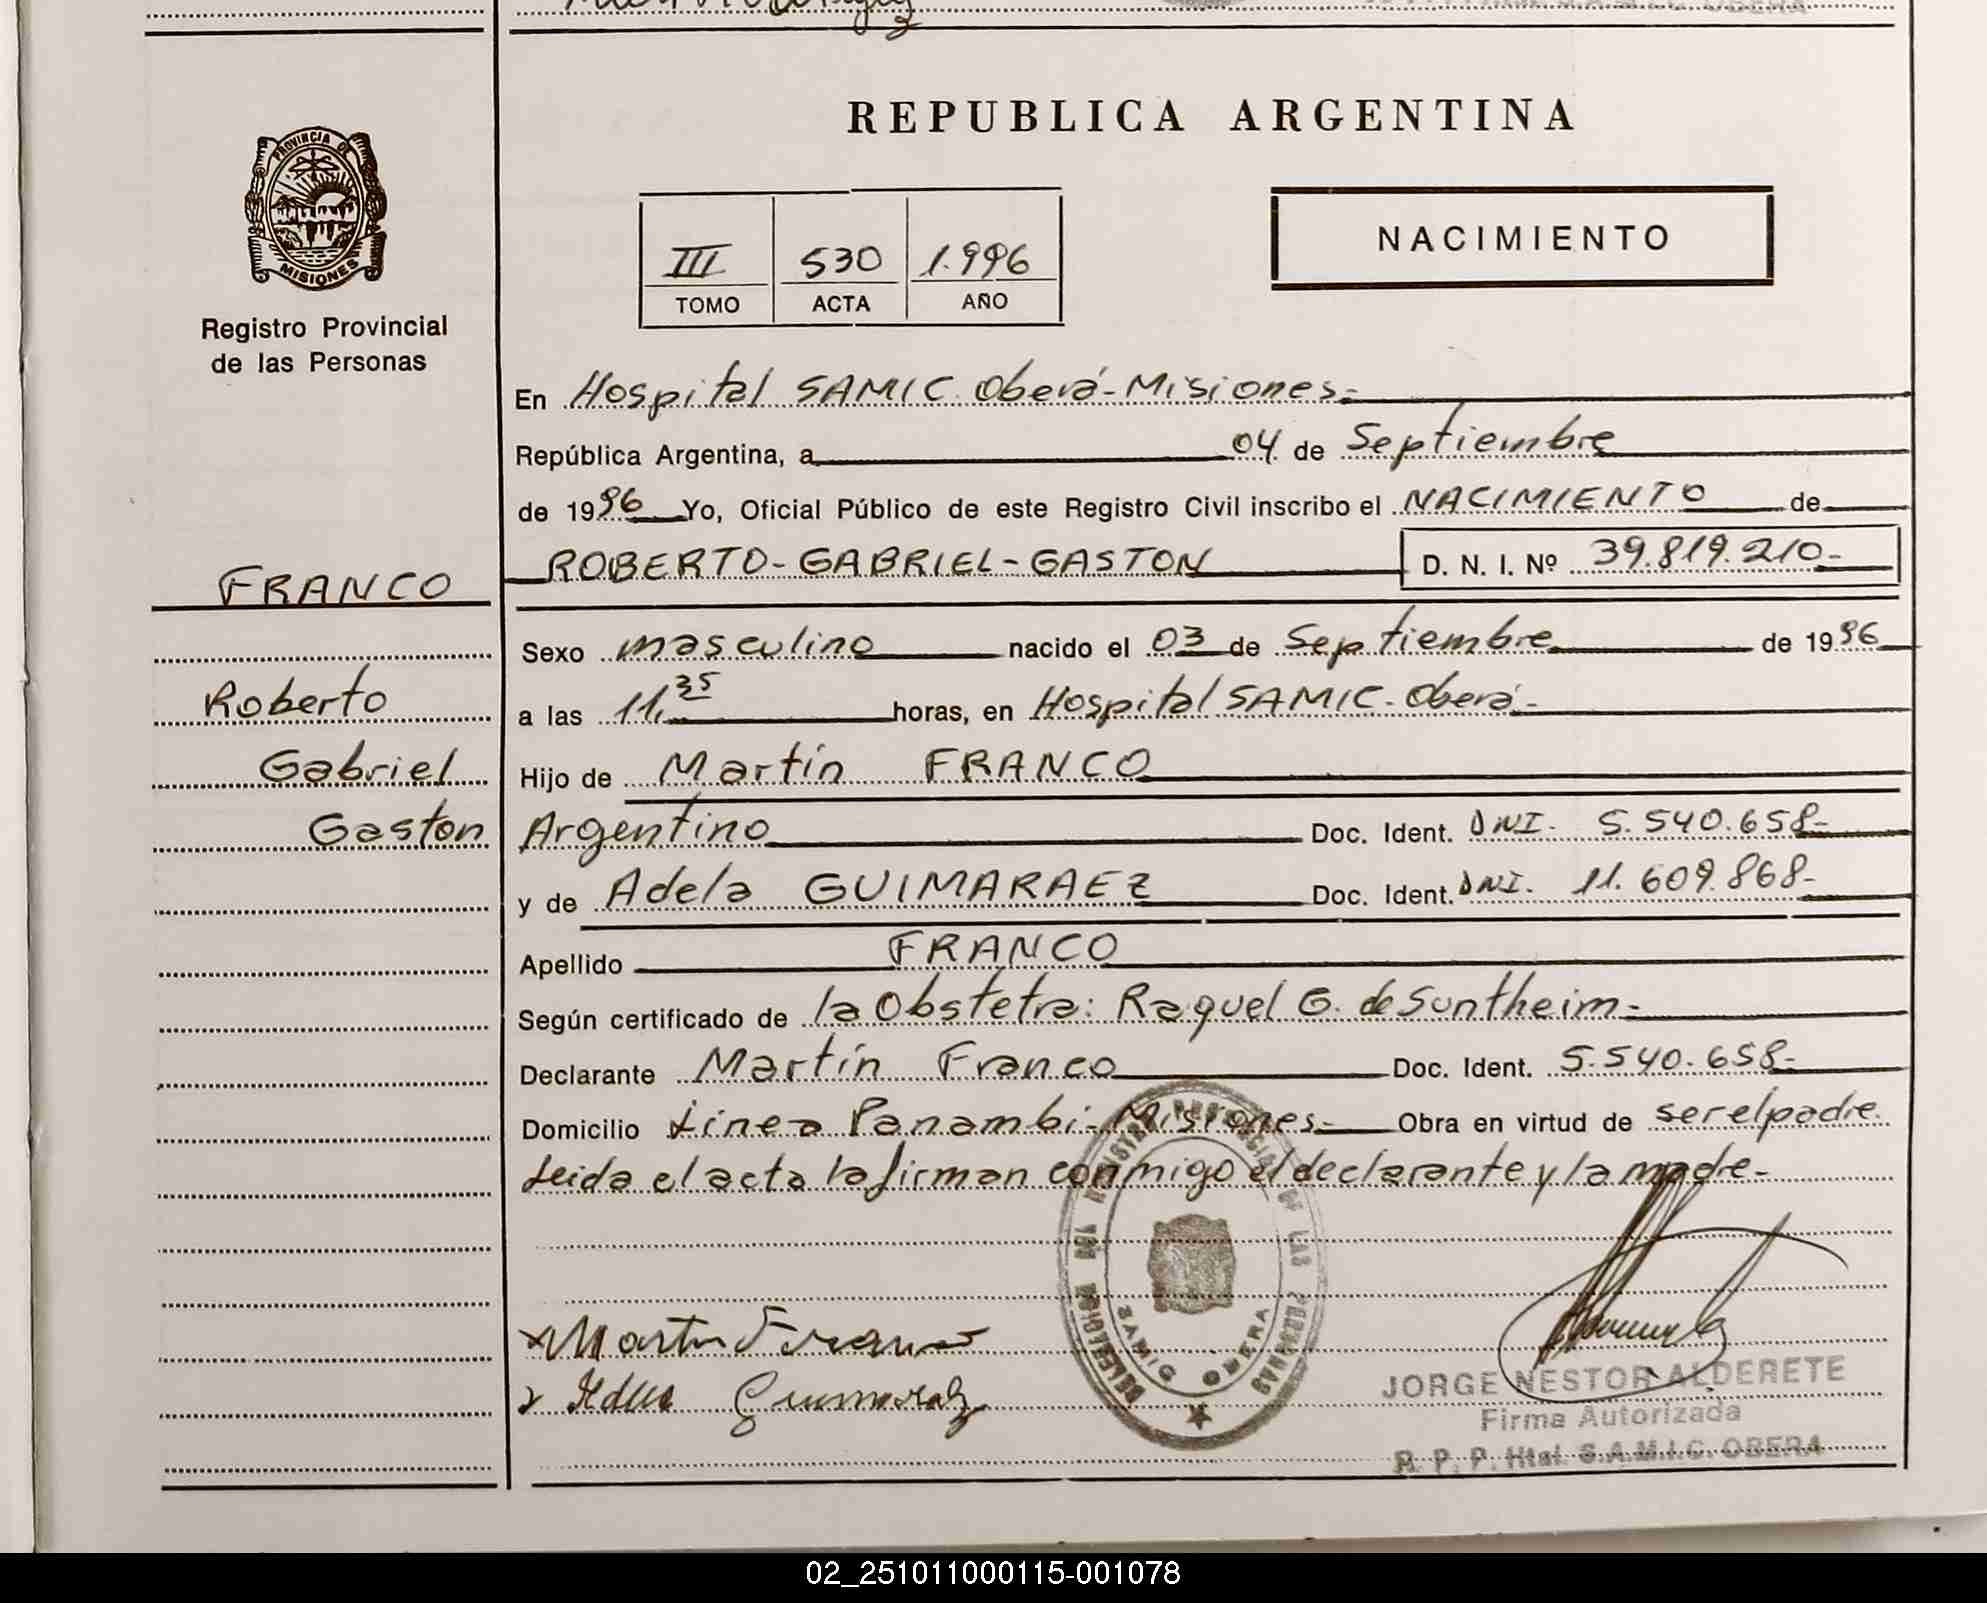 PROVINCIA DE
MISIONES
Registro Provincial
de las Personas
FRANCO
Roberto
Gabriel
Gaston
REPUBLICA ARGENTINA
III 530 1.996
TOMO ACTA AÑO
NACIMIENTO
En Hospital SAMIC. Oberá-Misiones-
República Argentina, a 04 de Septiembre
de 1996 Yo, Oficial Público de este Registro Civil inscribo el NACIMIENTO de
ROBERTO-GABRIEL-GASTON D. N. I. Nº 39.819.210-
Sexo masculino nacido el 03 de Septiembre de 1996
a las 11,35 horas, en Hospital SAMIC-Oberá-
Hijo de Martín FRANCO
Argentino Doc. Ident. DNI- 5.540.658-
y de Adela GUIMARAEZ Doc. Ident. DNI. 11.609.868-
Apellido FRANCO
Según certificado de la Obstetra: Raquel G. de Suntheim-
Declarante Martín Franco Doc. Ident. 5.540.658-
Domicilio Linea Panambí-Misiones- Obra en virtud de ser el padre.
Leida el acta la firman conmigo el declarante y la madre-
x Martin Franco
JORGE NESTOR ALDERETE
Firma Autorizada
R. P. P. Htal. S.A.M.I.C. OBERA
SAMIC OBERA
02_251011000115-001078